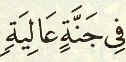 فِي جَنَّةٍ عَالِيَةٍ